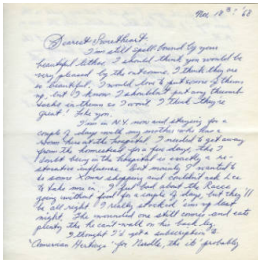 Nov 18th '68
Dearest Sweetheart,
I'm still spell bound by your
beautiful letter. I should think you would be
very pleased by the outcome. I think they are
so beautiful. I would love to put some of them
up, but I know I shouldn't put any
in them so I won't. I think they're
great! Like you.
I'm in N.Y. now and staying for a
couple of days with my mother who has a
room here at the hospital. I needed to get away
from the homestead for a few days. Tho I
doubt being in the hospital is exactly a re-
storative influence. But mainly I wanted to
do some Xmas shopping and couldn't ask
to take me in. I feel bad about the
going without food for a couple of days, but they'll
be all right! I really stocked 'em up last
night. The wounded one still comes and eats
plenty tho he can't well on his back leg.
I thought I'd get a subscription to
"American Heritage" for , tho it probably